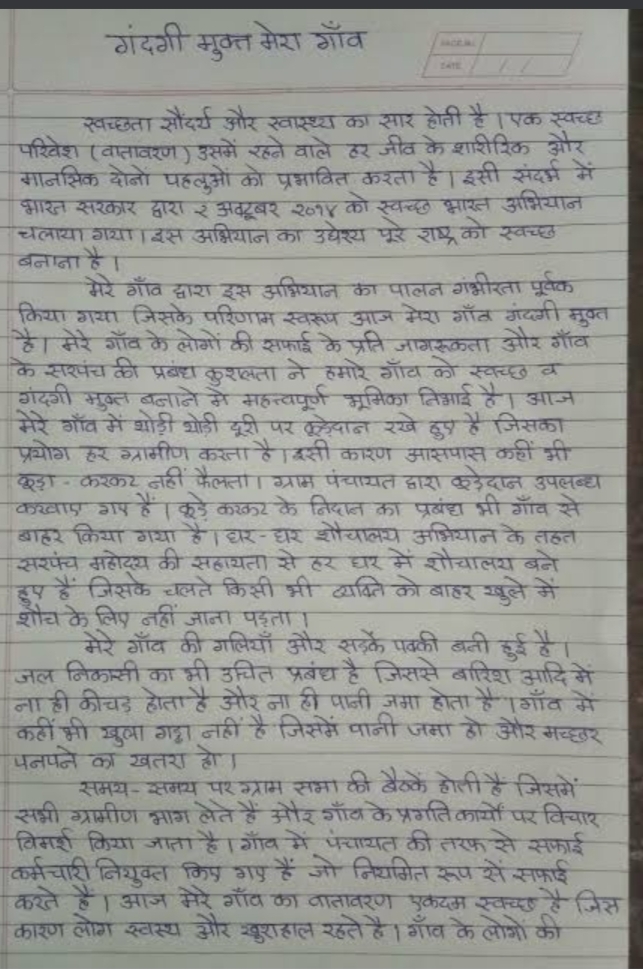 गंदगी मुक्त मेरा गाँव
PAGE No.
DATE / /
स्वच्छता सौंदर्य और स्वास्थ्य का सार होती है । एक स्वच्छ
परिवेश (वातावरण) उसमें रहने वाले हर जीव के शारीरिक और
मानसिक दोनों पहलुओं को प्रभावित करता है । इसी संदर्भ में
भारत सरकार द्वारा २ अक्टूबर २०१४ को स्वच्छ भारत अभियान
चलाया गया । इस अभियान का उद्येश्य पूरे राष्ट्र को स्वच्छ
बनाना है ।
मेरे गाँव द्वारा इस अभियान का पालन गंभीरता पूर्वक
किया गया जिसके परिणाम स्वरूप आज मेरा गाँव गंदगी मुक्त
है । मेरे गाँव के लोगों की सफाई के प्रति जागरूकता और गाँव
के सरपंच की प्रबंध कुशलता ने हमारे गाँव को स्वच्छ व
गंदगी मुक्त बनाने में महत्त्वपूर्ण भूमिका निभाई है । आज
मेरे गाँव में थोड़ी थोड़ी दूरी पर कूड़ेदान रखे हुए है जिसका
प्रयोग हर ग्रामीण करता है । इसी कारण आसपास कहीं भी
कूड़ा - करकट नहीं फैलता । ग्राम पंचायत द्वारा कूड़ेदान उपलब्ध
करवाए गए हैं । कूड़े करकट के निदान का प्रबंध भी गाँव से
बाहर किया गया है । घर - घर शौचालय अभियान के तहत
सरपंच महोदय की सहायता से हर घर में शौचालय बने
हुए हैं जिसके चलते किसी भी व्यक्ति को बाहर खुले में
शौच के लिए नहीं जाना पड़ता ।
मेरे गाँव की गलियाँ और सड़कें पक्की बनी हुई है ।
जल निकासी का भी उचित प्रबंध है जिससे बारिश आदि में
ना ही कीचड़ होता है और ना ही पानी जमा होता है । गाँव में
कहीं भी खुला गड्ढा नहीं है जिसमें पानी जमा हो और मच्छर
पनपने का खतरा हो ।
समय - समय पर ग्राम सभा की बैठकें होती हैं जिसमें
सभी ग्रामीण भाग लेते हैं और गाँव के प्रगति कार्यों पर विचार
विमर्श किया जाता है । गाँव में पंचायत की तरफ से सफाई
कर्मचारी नियुक्त किए गए हैं जो नियमित रूप से सफाई
करते हैं । आज मेरे गाँव का वातावरण एकदम स्वच्छ है जिस
कारण लोग स्वस्थ और खुशहाल रहते है । गाँव के लोगों की